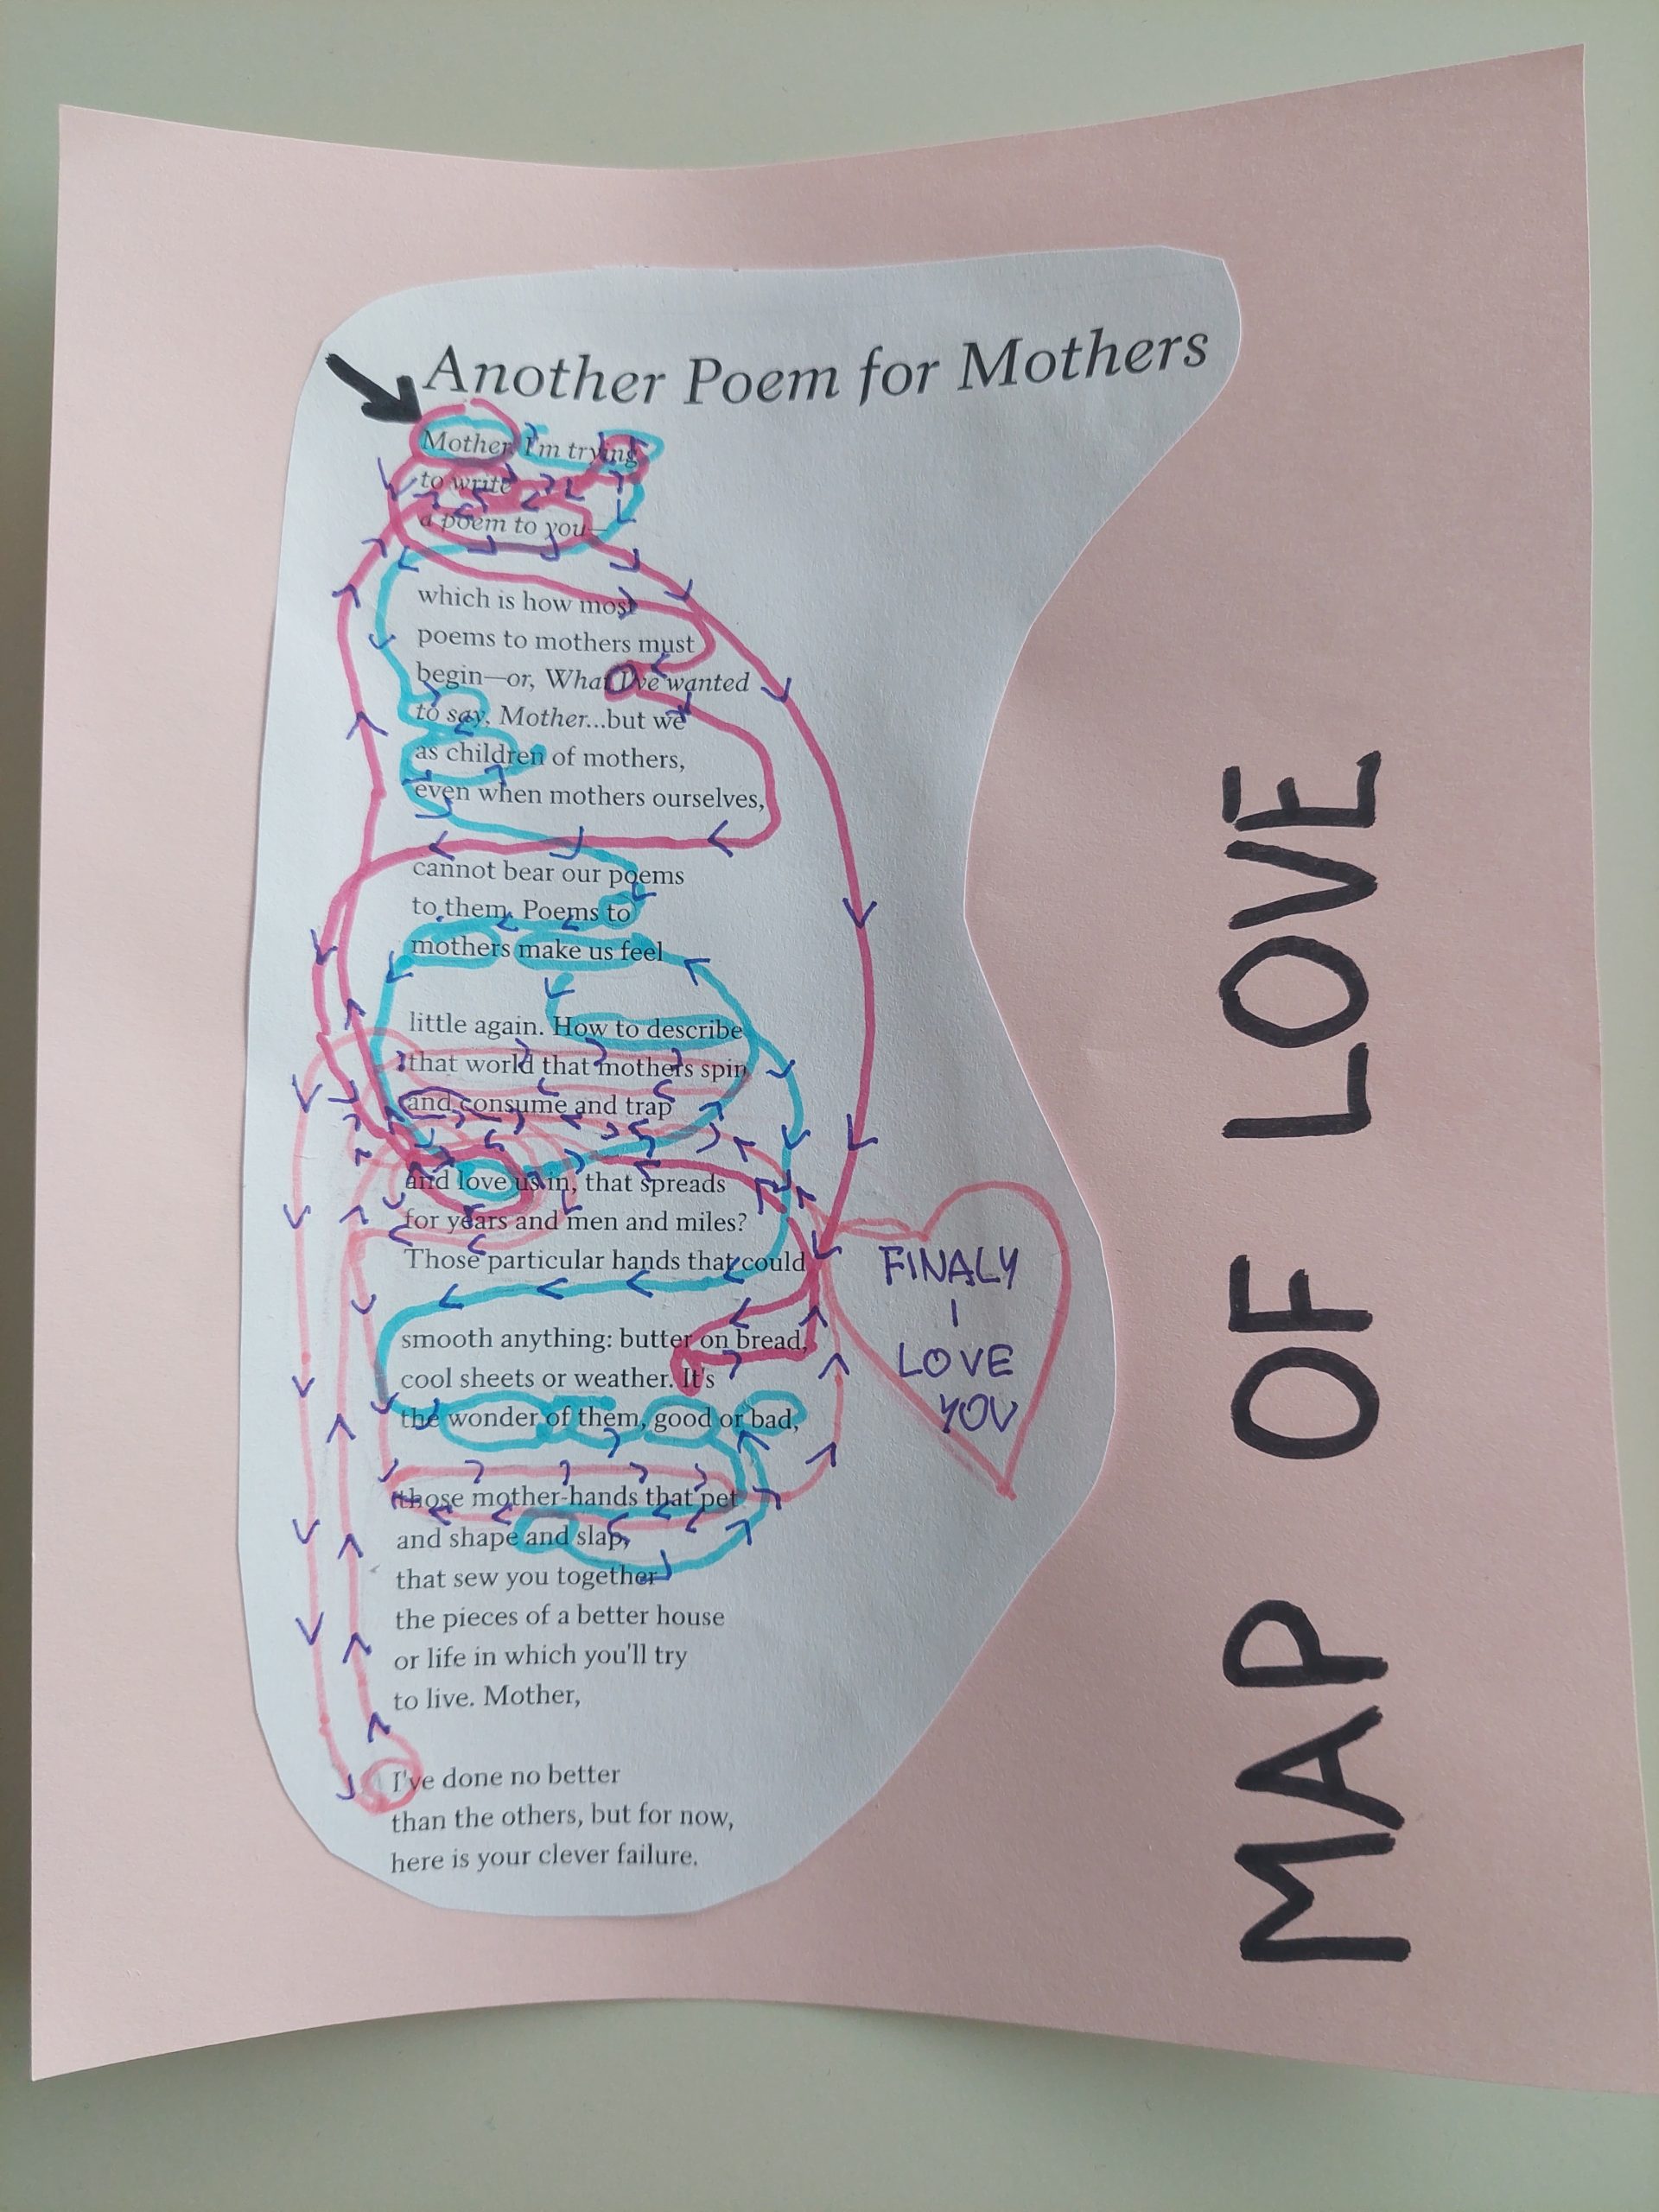 Another Poem for Mothers
Mother, I'm trying
to write
a poem to you—
which is how most
poems to mothers must
begin—or, What I've wanted
to say, Mother...but we
as children of mothers,
even when mothers ourselves,
cannot bear our poems
to them. Poems to
mothers make us feel
little again. How to describe
that world that mothers spin
and consume and trap
and love us in, that spreads
for years and men and miles?
Those particular hands that could
smooth anything: butter on bread,
cool sheets or weather. It's
the wonder of them, good or bad,
those mother-hands that pet
and shape and slap,
that sew you together
the pieces of a better house
or life in which you'll try
to live. Mother,
I've done no better
than the others, but for now,
here is your clever failure.
FINALY
I
LOVE
YOU
MAP OF LOVE